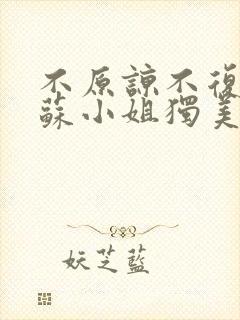 不原諒不復
蘇小姐獨美
妖芝藍